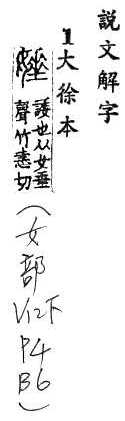 說文解字
1大徐本
娷
諉也从女垂
聲竹恚切
(女部V12下P4B6)